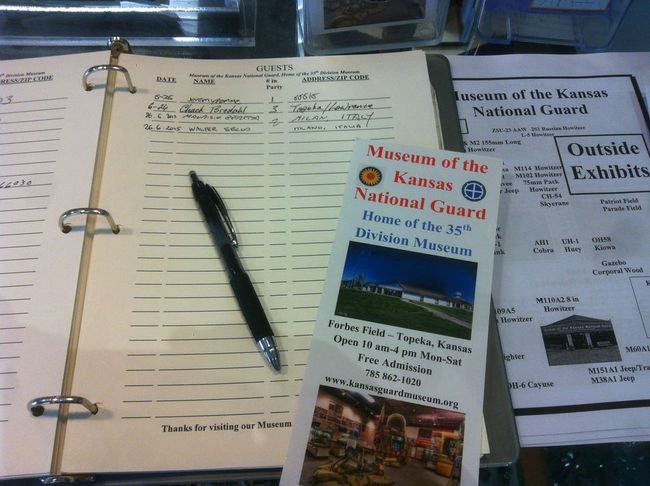 Division Museum
ADDRESS/ZIP CODE
GUESTS
Museum of the Kansas National Guard, Home of the 35th Division Museum
DATE NAME # in Party ADDRESS/ZIP CODE
6-26 1
6-26 Chuck 3 Topeka/Lawrence
2 MILAN ITALY
26.6.2015 WALTER MILANO, ITALIA
Thanks for visiting our Museum
Museum of the
Kansas
National Guard
Home of the 35th
Division Museum
Forbes Field – Topeka, Kansas
Open 10 am-4 pm Mon-Sat
Free Admission
785 862-1020
www.kansasguardmuseum.org
Museum of the Kansas
National Guard
ZSU-23 AAW 2S1 Russian Howitzer
L-5 Howitzer
& M2 155mm Long
Howitzer
Outside
Exhibits
M114 Howitzer
M102 Howitzer
75mm Pack
Howitzer
Jeep
CH-54
Skycrane
Patriot Field
Parade Field
AH1 UH-1 OH58
Cobra Huey Kiowa
Gazebo
Corporal Wood
M110A2 8 in
Howitzer
109A5
Howitzer
M60A
M151A1 Jeep/Tra
M38A1 Jeep
OH-6 Cayuse